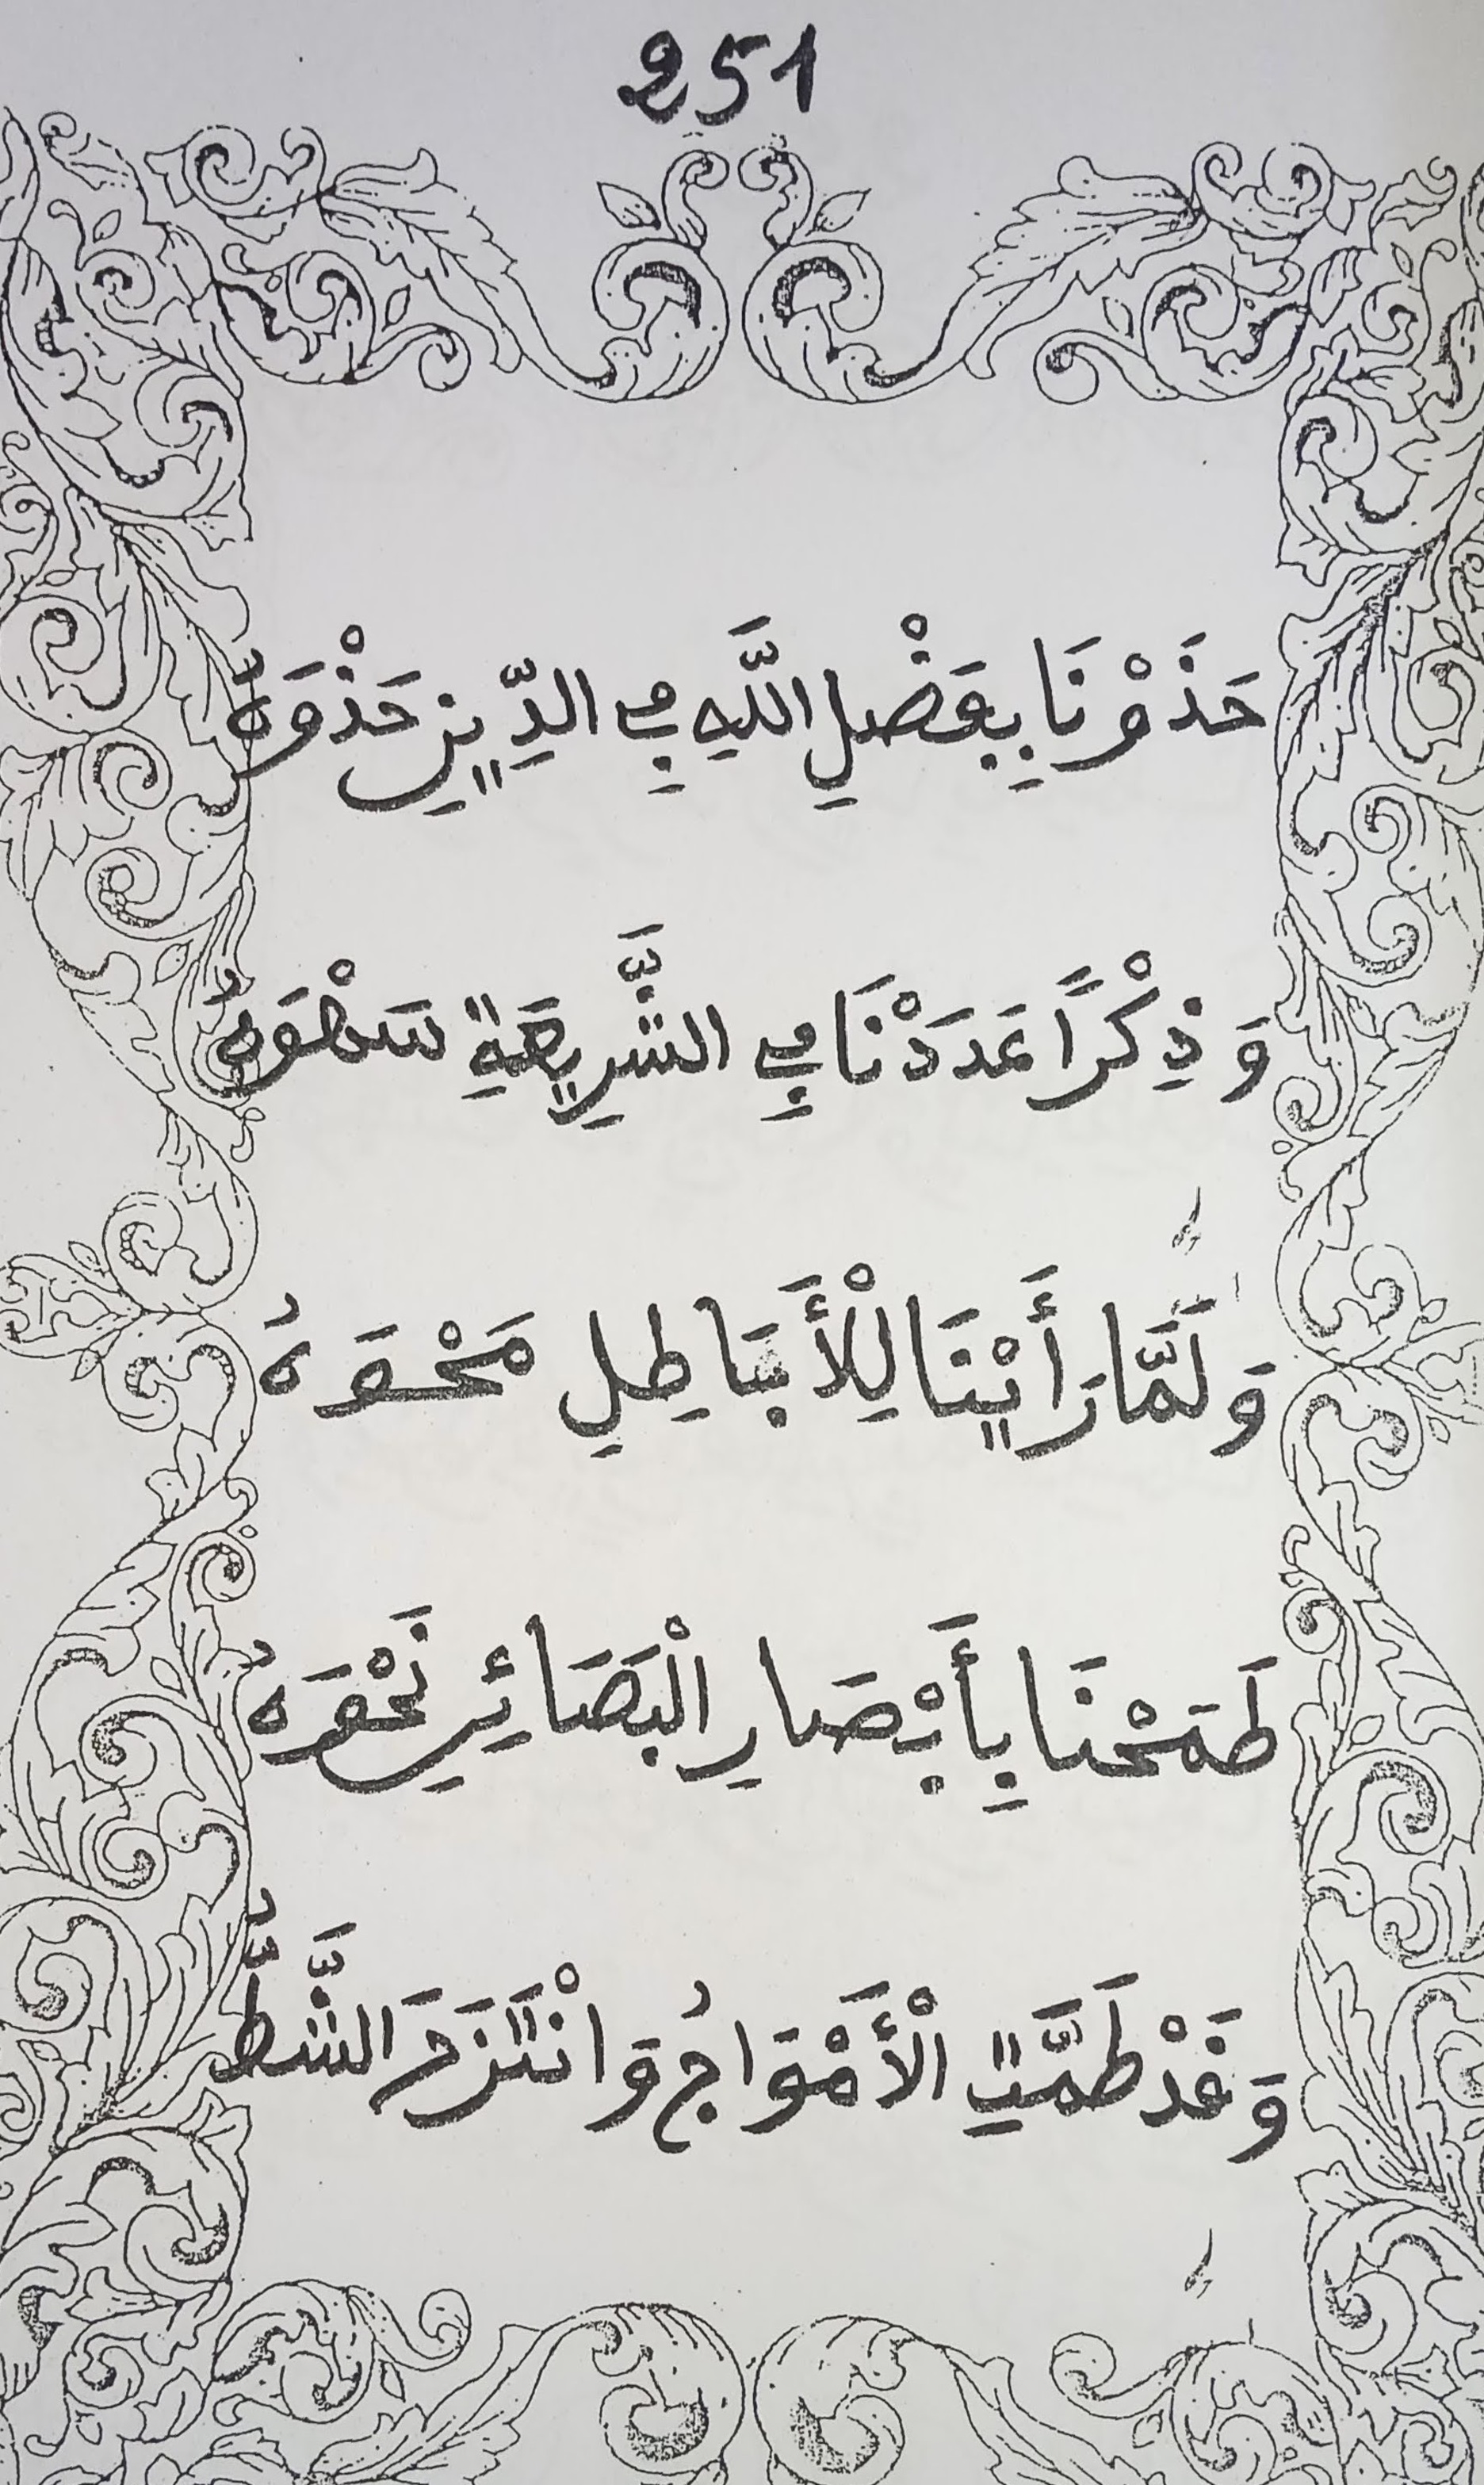 251
حَذَوْنَا بِفَضْلِ اللَّهِ فِي الدِّينِ حَذْوَهُ
وَذِكْرًا عَدَدْنَا فِي الشَّرِيعَةِ سَطْوَهُ
وَلَمَّا رَأَيْنَا لِلْأَبَاطِلِ مَحْوَهُ
طَمَحْنَا بِأَبْصَارِ الْبَصَائِرِ نَحْوَهُ
وَقَدْ طَمَّتِ الْأَمْوَاجُ وَانْتَزَحَ الشَّطُّ